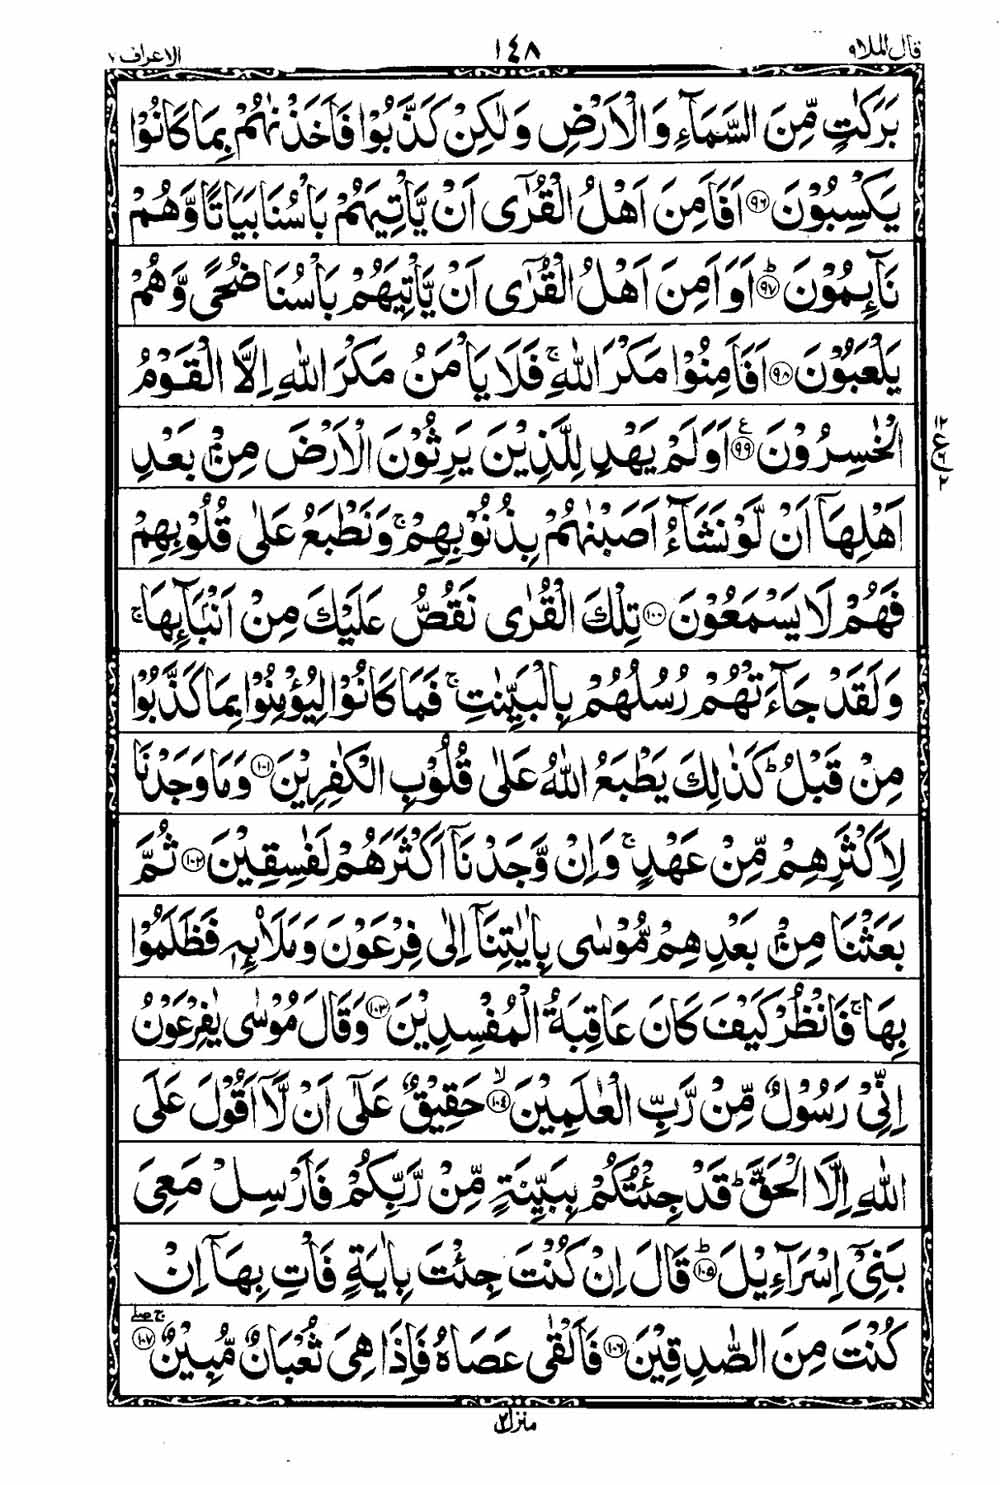 قال الملا ٩ ١٤٨ الاعراف ٧
بَرَكٰتٍ مِّنَ السَّمَآءِ وَالْاَرْضِ وَلٰكِنْ كَذَّبُوْا فَاَخَذْنٰهُمْ بِمَا كَانُوْا
يَكْسِبُوْنَ ﴿٩٦﴾ اَفَاَمِنَ اَهْلُ الْقُرٰٓى اَنْ يَّاْتِيَهُمْ بَاْسُنَا بَيَاتًا وَّهُمْ
نَآئِمُوْنَ ﴿٩٧﴾ؕ اَوَاَمِنَ اَهْلُ الْقُرٰٓى اَنْ يَّاْتِيَهُمْ بَاْسُنَا ضُحًى وَّهُمْ
يَلْعَبُوْنَ ﴿٩٨﴾ اَفَاَمِنُوْا مَكْرَ اللّٰهِ ۚ فَلَا يَاْمَنُ مَكْرَ اللّٰهِ اِلَّا الْقَوْمُ
الْخٰسِرُوْنَ ﴿٩٩﴾ ع اَوَلَمْ يَهْدِ لِلَّذِيْنَ يَرِثُوْنَ الْاَرْضَ مِنْۢ بَعْدِ
اَهْلِهَآ اَنْ لَّوْ نَشَآءُ اَصَبْنٰهُمْ بِذُنُوْبِهِمْ ۚ وَنَطْبَعُ عَلٰى قُلُوْبِهِمْ
فَهُمْ لَا يَسْمَعُوْنَ ﴿١٠٠﴾ تِلْكَ الْقُرٰى نَقُصُّ عَلَيْكَ مِنْ اَنْۢبَآئِهَا ۚ
وَلَقَدْ جَآءَتْهُمْ رُسُلُهُمْ بِالْبَيِّنٰتِ ۚ فَمَا كَانُوْا لِيُؤْمِنُوْا بِمَا كَذَّبُوْا
مِنْ قَبْلُ ؕ كَذٰلِكَ يَطْبَعُ اللّٰهُ عَلٰى قُلُوْبِ الْكٰفِرِيْنَ ﴿١٠١﴾ وَمَا وَجَدْنَا
لِاَكْثَرِهِمْ مِّنْ عَهْدٍ ۚ وَاِنْ وَّجَدْنَآ اَكْثَرَهُمْ لَفٰسِقِيْنَ ﴿١٠٢﴾ ثُمَّ
بَعَثْنَا مِنْۢ بَعْدِهِمْ مُّوْسٰى بِاٰيٰتِنَآ اِلٰى فِرْعَوْنَ وَمَلَا۟ئِهٖ فَظَلَمُوْا
بِهَا ۚ فَانْظُرْ كَيْفَ كَانَ عَاقِبَةُ الْمُفْسِدِيْنَ ﴿١٠٣﴾ وَقَالَ مُوْسٰى يٰفِرْعَوْنُ
اِنِّيْ رَسُوْلٌ مِّنْ رَّبِّ الْعٰلَمِيْنَ ﴿١٠٤﴾ۙ حَقِيْقٌ عَلٰٓى اَنْ لَّآ اَقُوْلَ عَلَى
اللّٰهِ اِلَّا الْحَقَّ ؕ قَدْ جِئْتُكُمْ بِبَيِّنَةٍ مِّنْ رَّبِّكُمْ فَاَرْسِلْ مَعِيَ
بَنِيْٓ اِسْرَآءِيْلَ ﴿١٠٥﴾ؕ قَالَ اِنْ كُنْتَ جِئْتَ بِاٰيَةٍ فَاْتِ بِهَآ اِنْ
كُنْتَ مِنَ الصّٰدِقِيْنَ ﴿١٠٦﴾ فَاَلْقٰى عَصَاهُ فَاِذَا هِيَ ثُعْبَانٌ مُّبِيْنٌ ﴿١٠٧﴾ ج صلے
منزل ٢